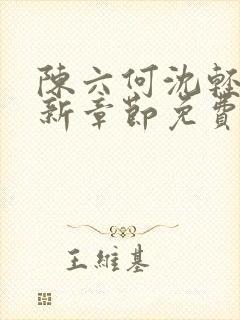 陳六何沈輕
新章節免費
王維基